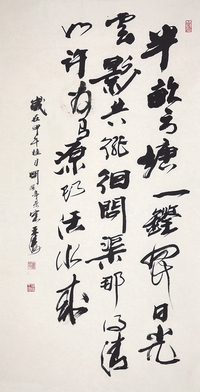 半畝方塘一鑑開天光
雲影共徘徊問渠那得清
如許為有源頭活水來
歲在甲午